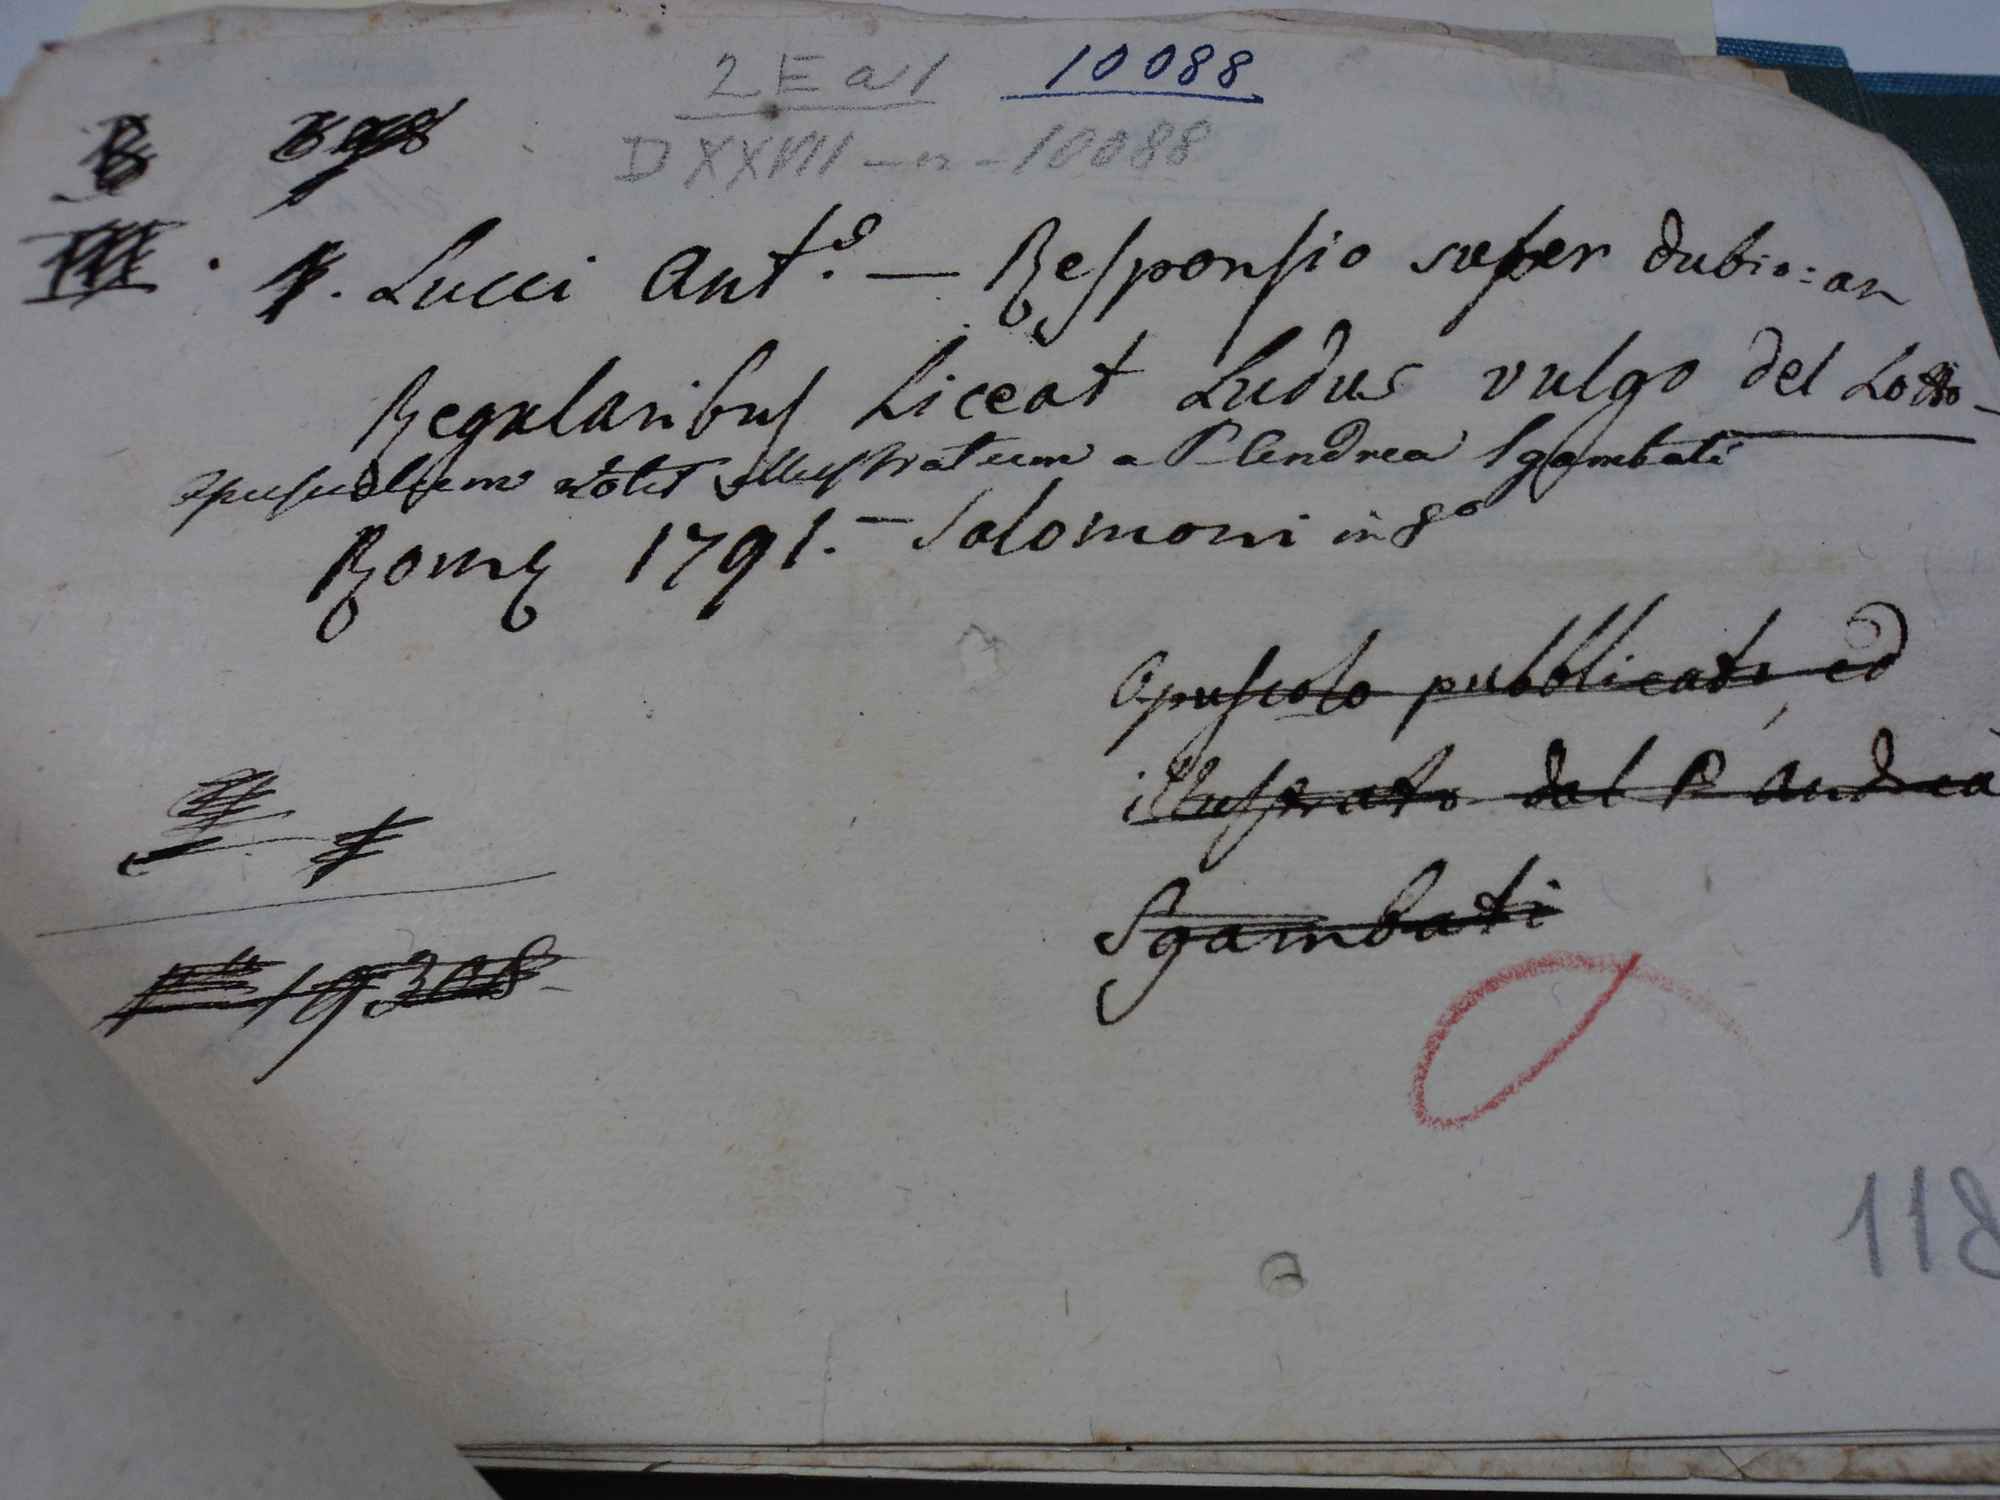 2 E a 1 10088
DXXVIII - n - 10088
P. Lucci Ant.o — Responsio super dubio: an
Regularibus liceat Ludus vulgo del Lotto -
opusculum notis illustratum a P. Andrea Sgambati
Romę 1791. - Salomoni in 8o
Opuscolo pubblicato, ed
illustrato dal P. Andrea
Sgambati
19308
118